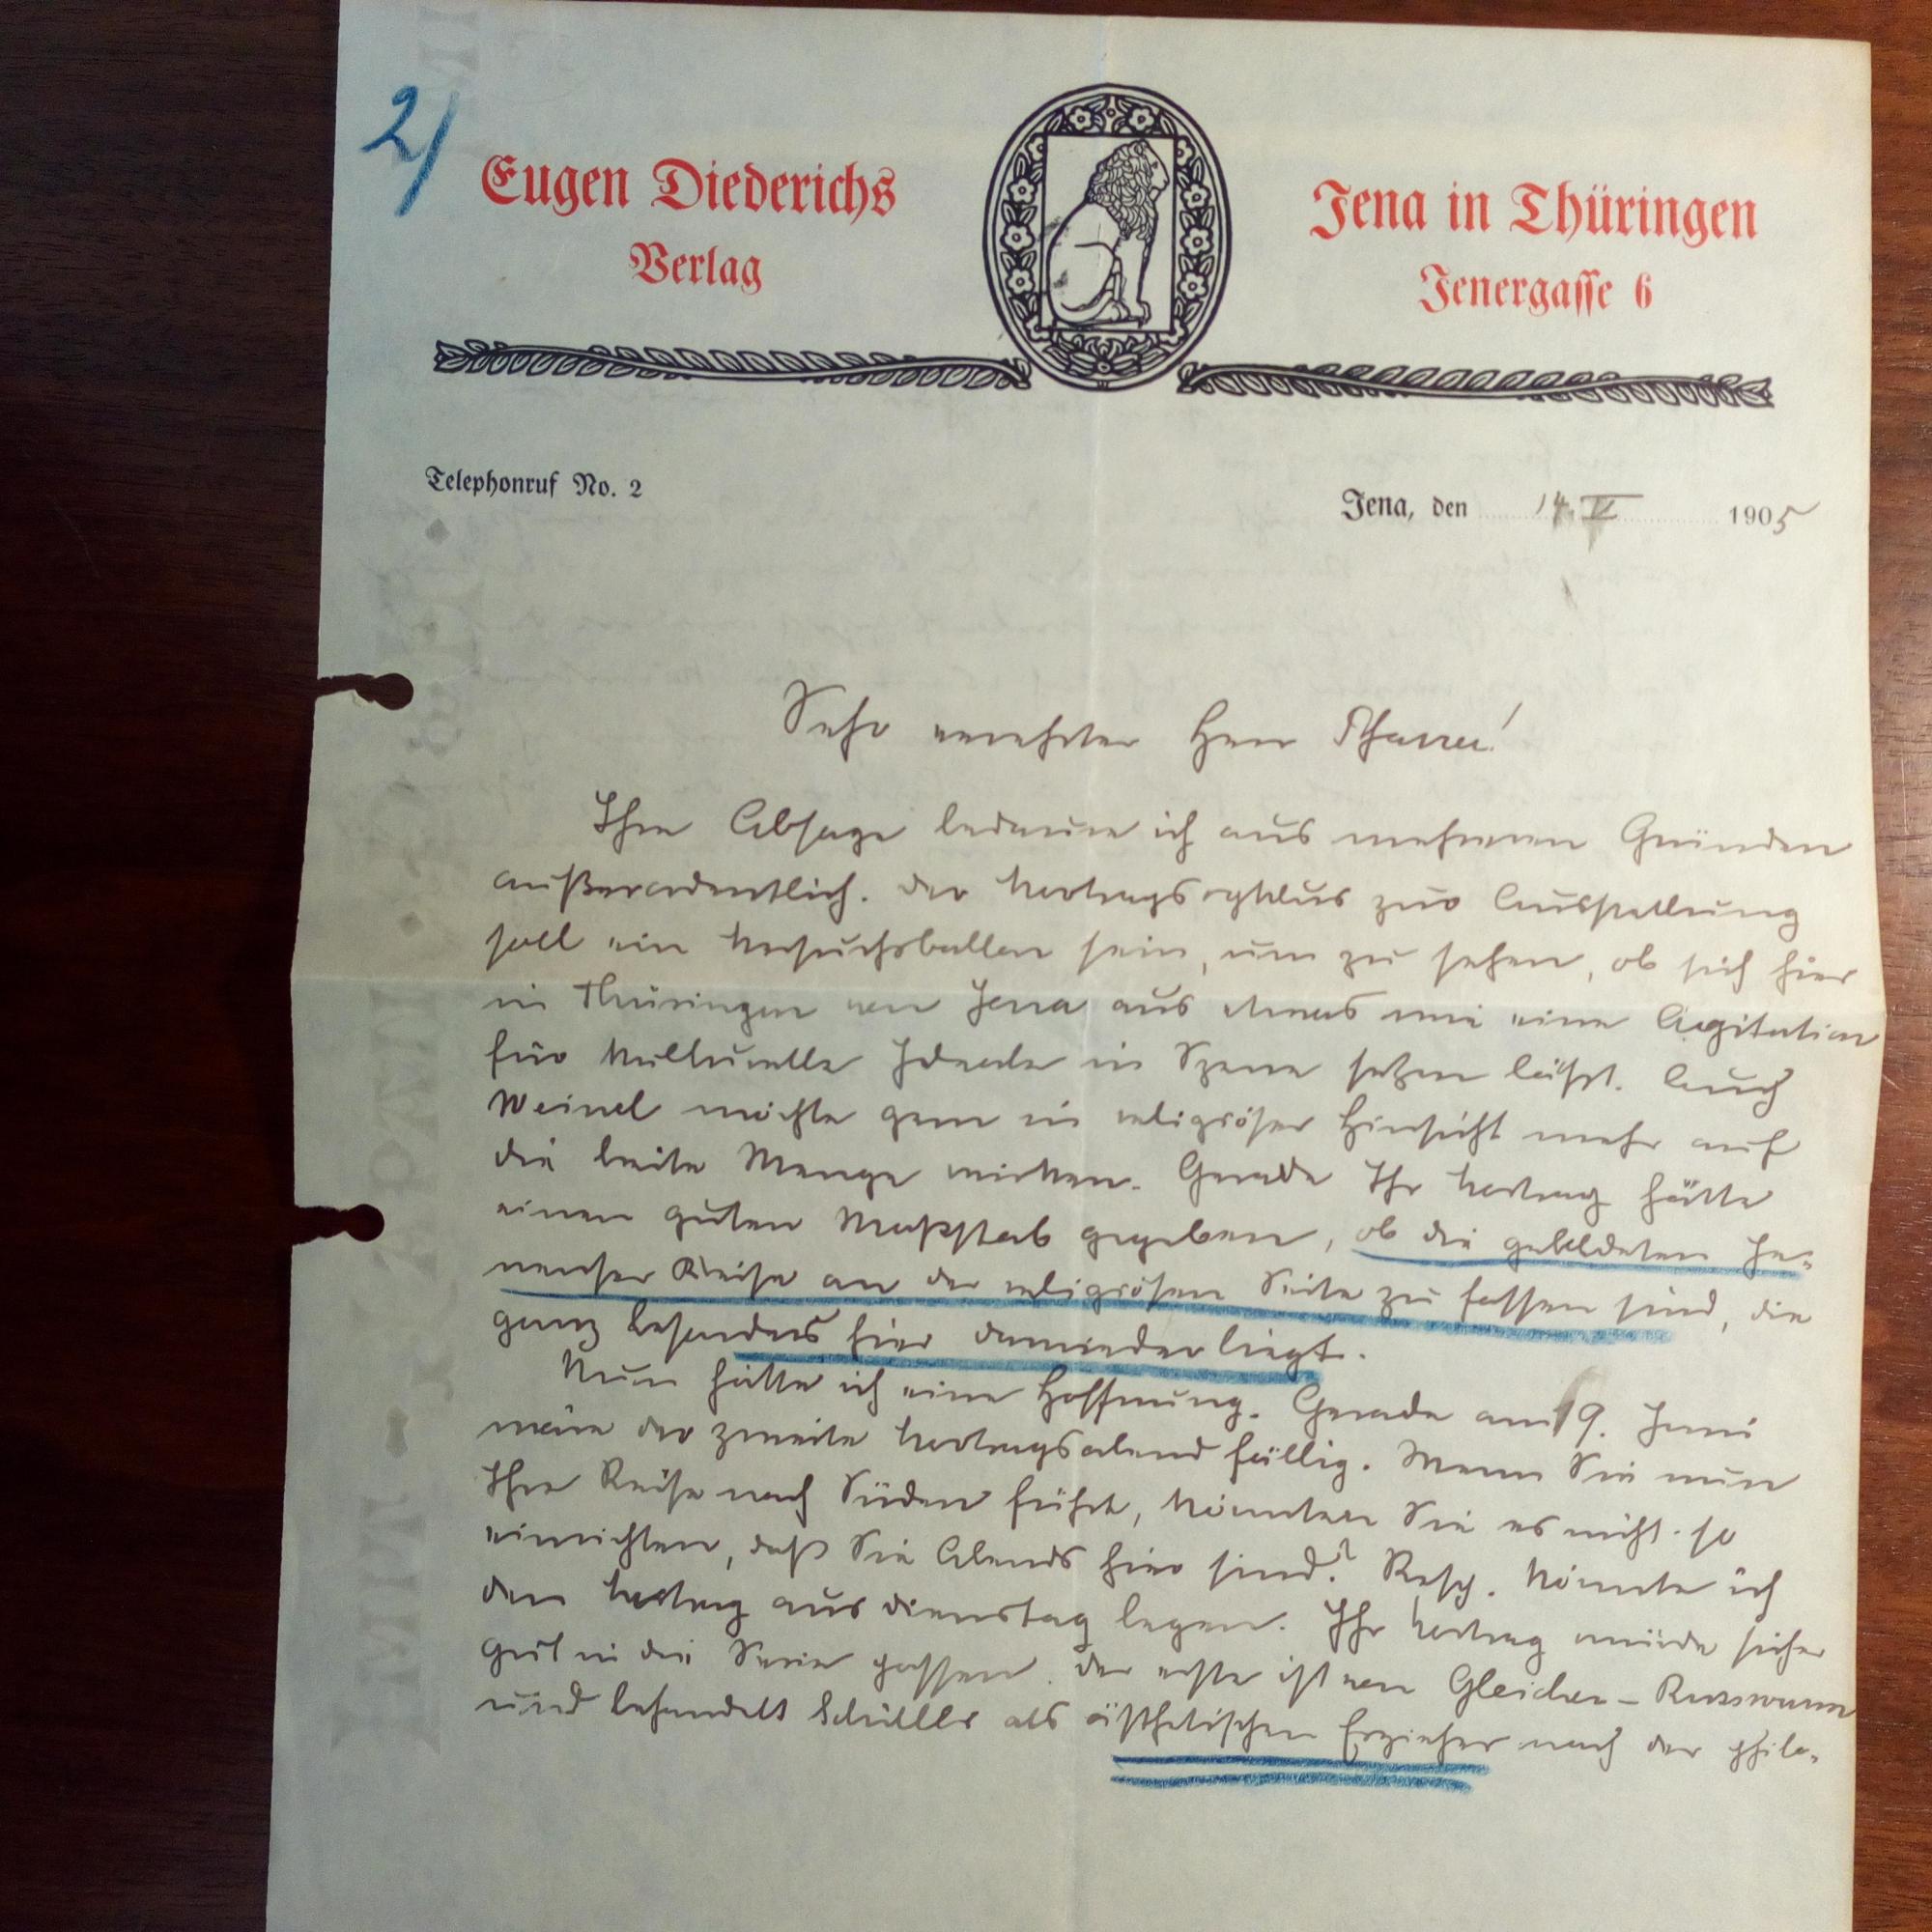 2)
Eugen Diederichs
Verlag
Jena in Thüringen
Jenergasse 6
Telephonruf No. 2
Jena, den 14. V 1905
Sehr verehrter Herr Pfarrer!
Ihre Absage bedaure ich aus mehreren Gründen
außerordentlich. Der Vortragscyklus zur Ausstellung
soll ein Versuchsballon sein, um zu sehen, ob sich hier
in Thüringen von Jena aus etwas wie eine Agitation
für kulturelle Ideale in Szene setzen läßt. Auch
Weinel möchte gern in religiöser Hinsicht mehr auf
die breite Menge wirken. Gerade Ihr Vortrag hätte
einen guten Maßstab gegeben, ob die gebildeten Je-
nenser Kreise an der religiösen Seite zu fassen sind, die
ganz besonders hier darnieder liegt.
Nun hätte ich eine Hoffnung. Gerade am 19. Juni
wäre der zweite Vortragsabend fällig. Wenn Sie nun
Ihre Reise nach Süden führt, könnten Sie es nicht so
einrichten, daß Sie Abends hier sind? Resp. könnte ich
den Vortrag aus dienstag legen. Ihr Vortrag würde sicher
gut in die Serie passen. Der erste ist von Gleichen-Russwurm
und behandelt Schiller als ästhetischen Erzieher nach der philo-